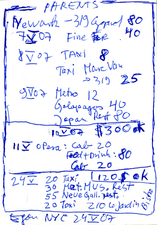 PARENTS
Newark - 319 Grand 80
7 V 07 Fine 40
8 V 07 TAXI 8
Taxi
319 25
9 V 07 Metro 12
Galapagos 40
Japan Rest 80
10 V 07 $300 OK
11 V Opera: Cab 20
Food + Drink: 80
Cab 20
24 V 20 Taxi 120$ OK
30 Met. Mus. Rest
55 Neue Gall. Rest.
20 Taxi
NYC 24 V 07